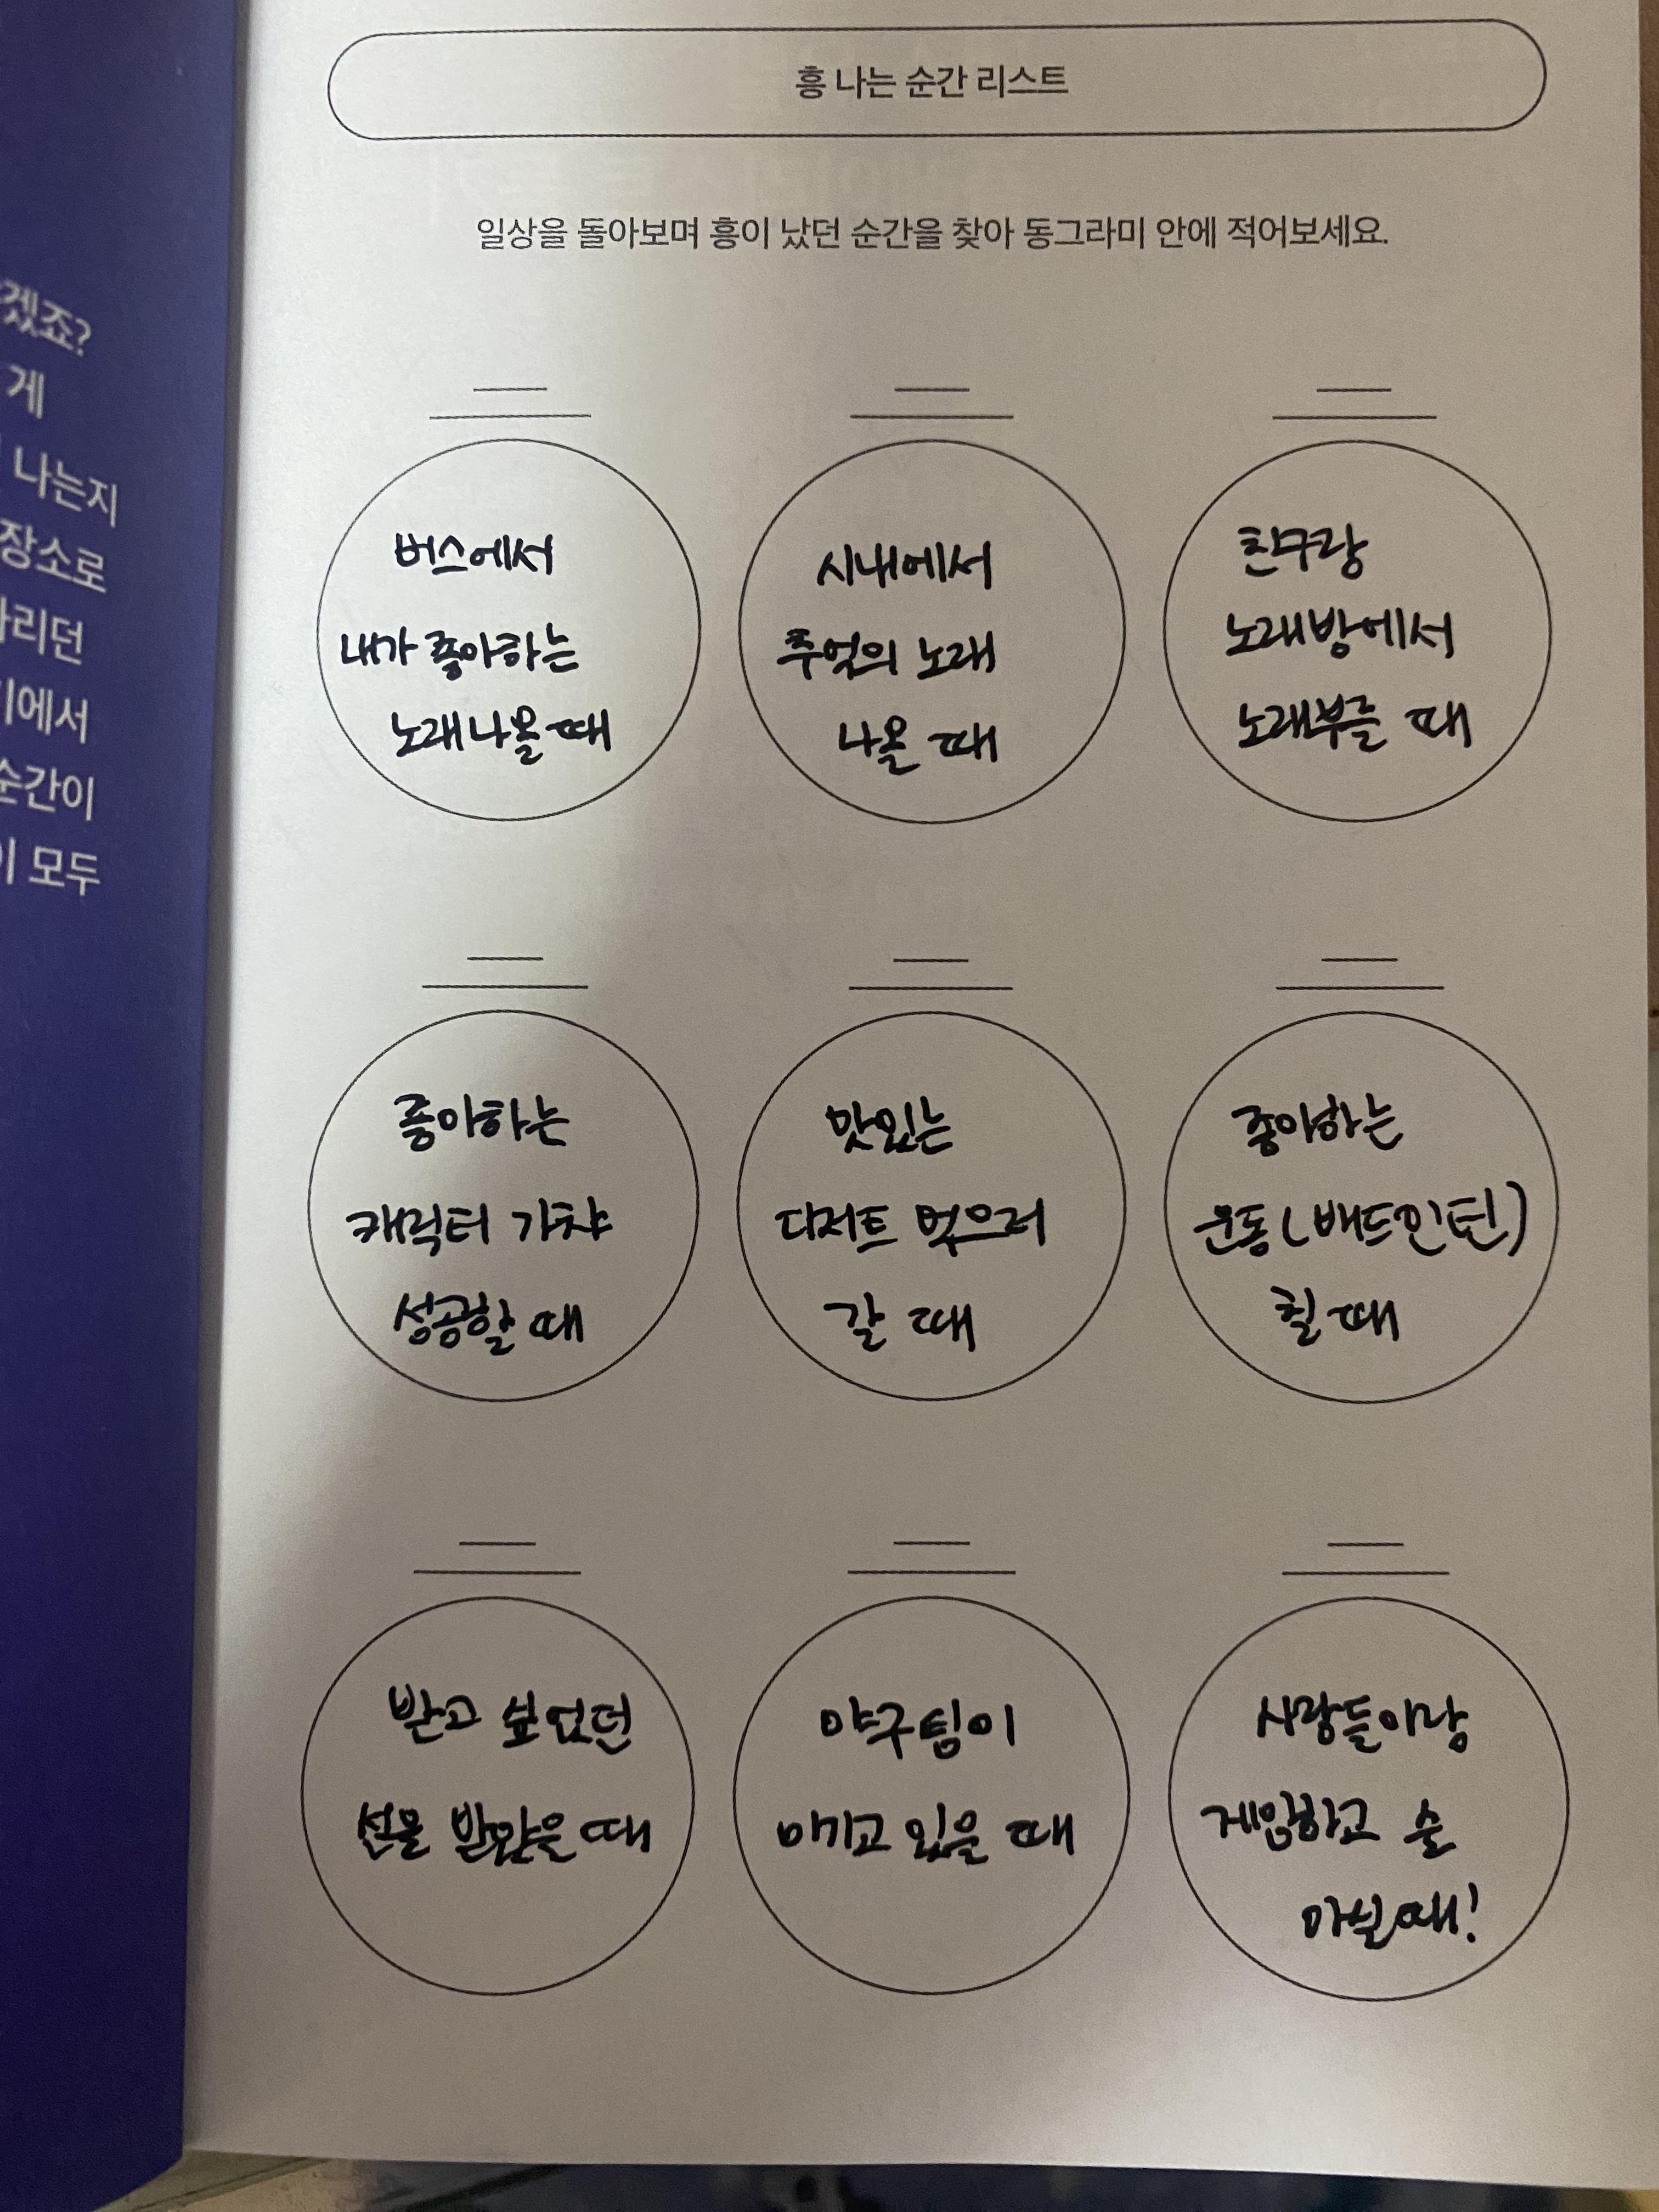 겠죠?
게
나는지
장소로
리던
에서
순간이
이 모두
흥 나는 순간 리스트
일상을 돌아보며 흥이 났던 순간을 찾아 동그라미 안에 적어보세요.
버스에서
내가 좋아하는
노래나올 때
시내에서
추억의 노래
나올 때
친구랑
노래방에서
노래부를 때
좋아하는
캐릭터 가챠
성공할 때
맛있는
디저트 먹으러
갈 때
좋아하는
운동(배드민턴)
칠 때
받고 싶었던
선물 받았을 때
야구팀이
이기고 있을 때
사람들이랑
게임하고 술
마실때!